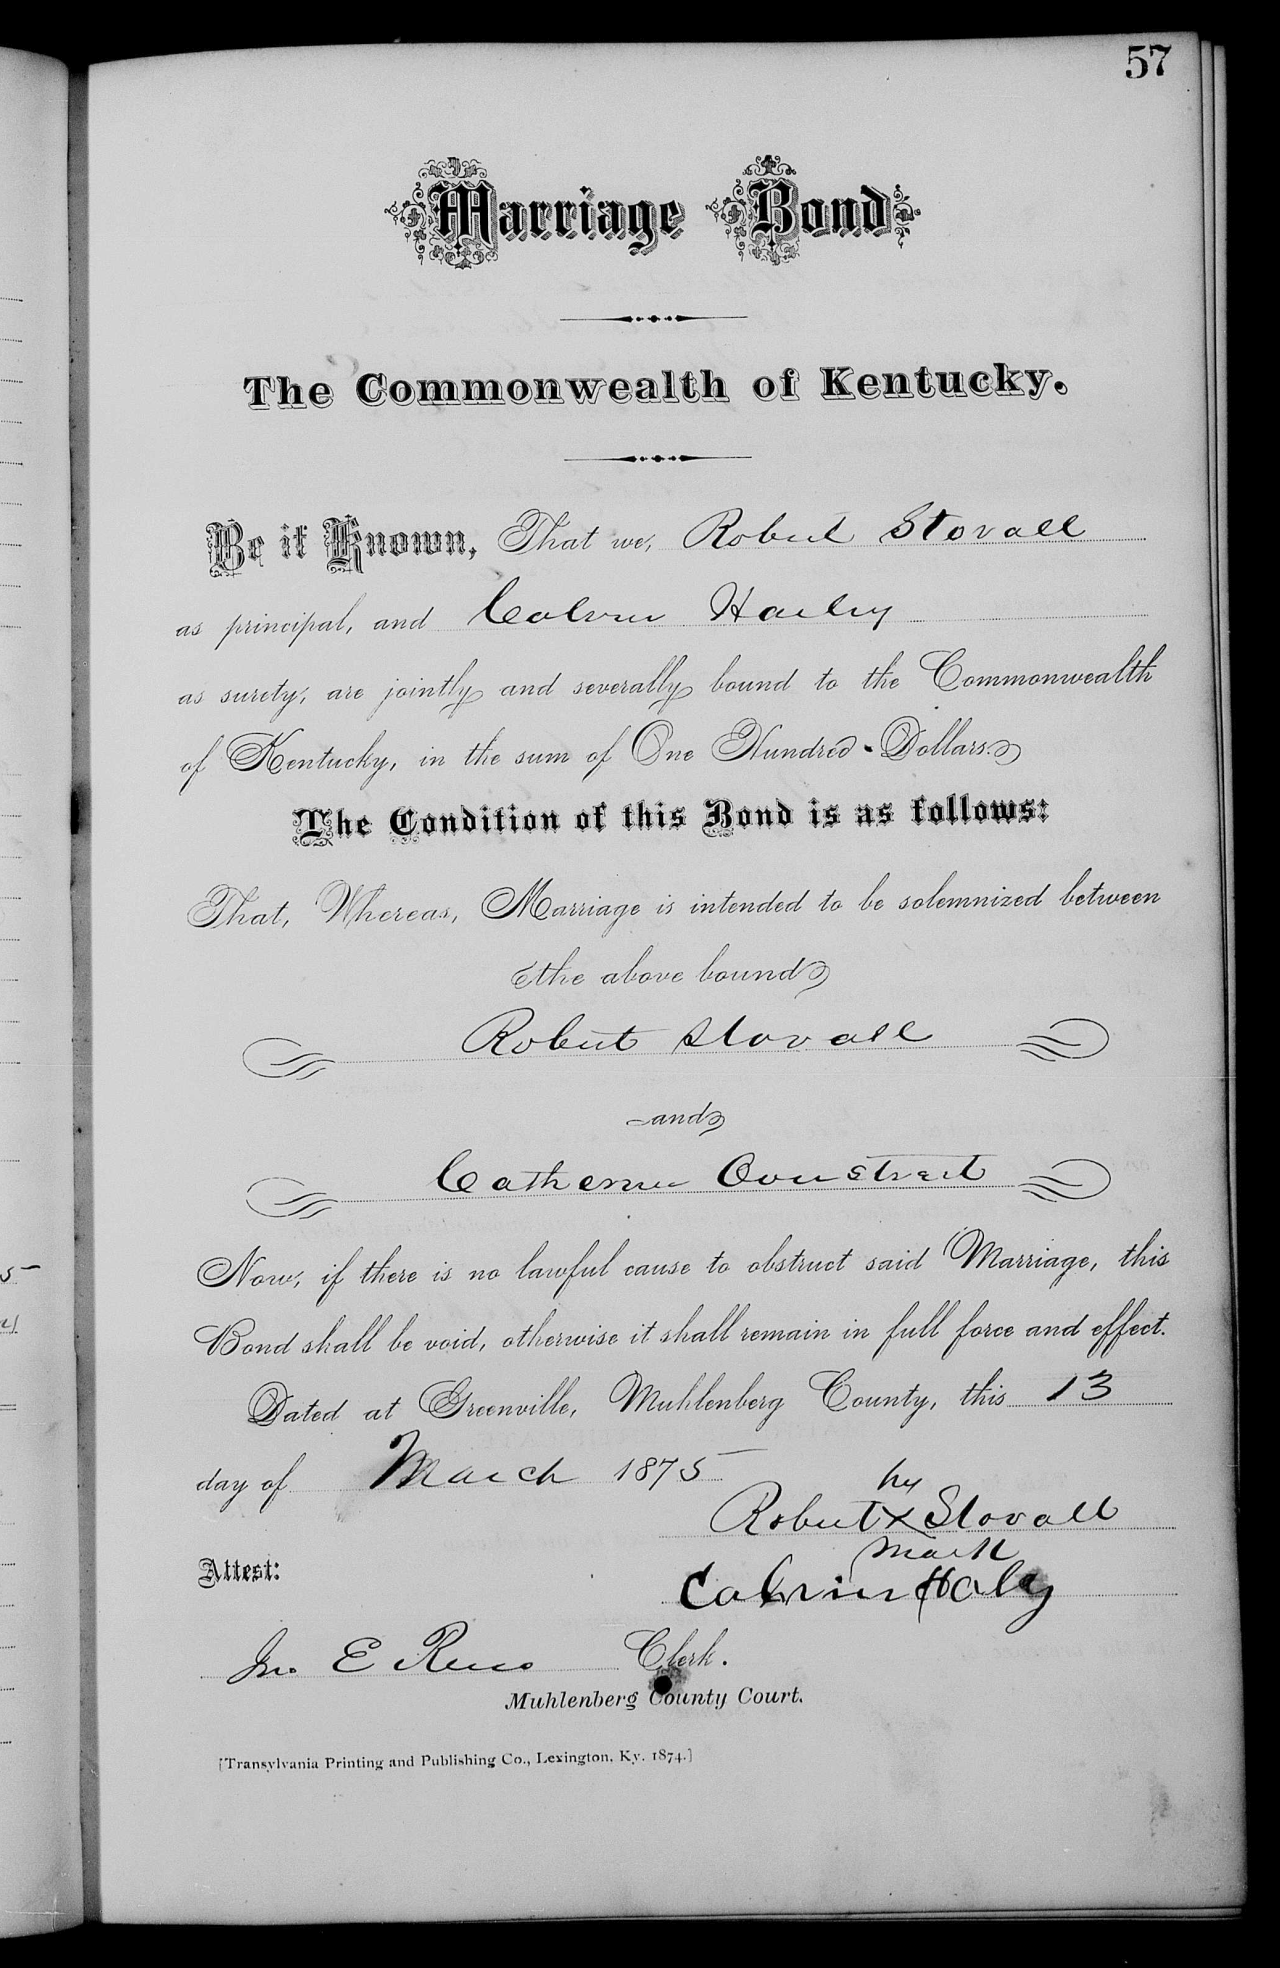 57
Marriage Bond
The Commonwealth of Kentucky.
Be it Known, That we, Robert Stovall
as principal, and Calvin Hailey
as surety, are jointly and severally bound to the Commonwealth
of Kentucky, in the sum of One Hundred Dollars.
The Condition of this Bond is as follows:
That, Whereas, Marriage is intended to be solemnized between
the above bound
Robert Stovall
and
Catherine Overstreet
Now, if there is no lawful cause to obstruct said Marriage, this
Bond shall be void, otherwise it shall remain in full force and effect.
Dated at Greenville, Muhlenberg County, this 13
day of March 1875
his
Robert X Stovall
mark
Attest:
Calvin Haley
Jno. E Reno Clerk.
Muhlenberg County Court.
[Transylvania Printing and Publishing Co., Lexington, Ky. 1874.]